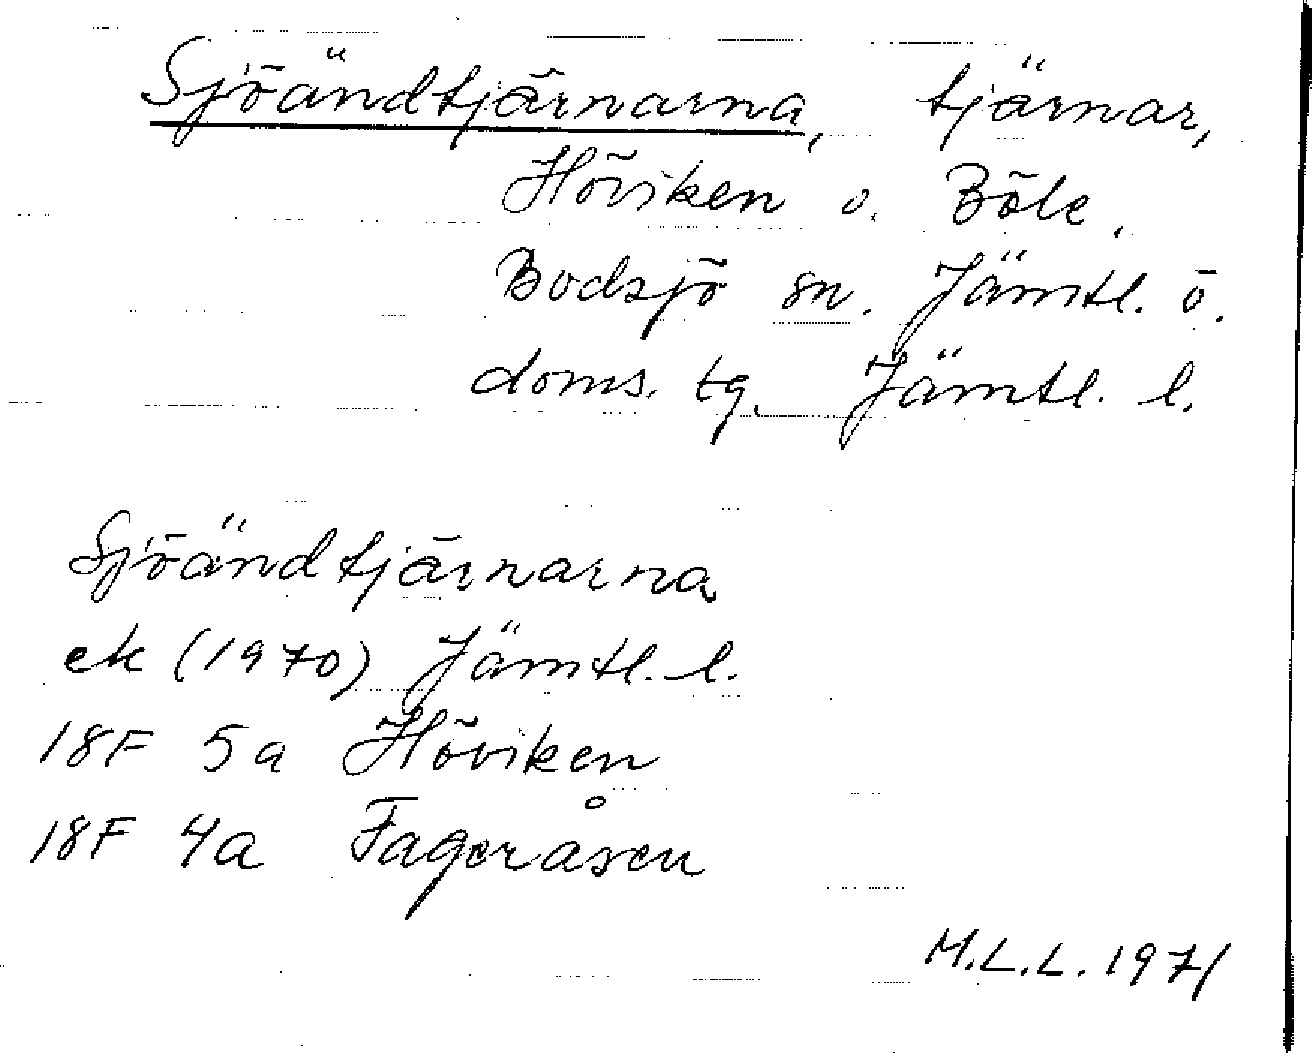 Sjöändtjärnarna, tjärnar,
Höviken o. Böle,
Bodsjö sn. Jämtl. ö.
doms. tg. Jämtl. l.
Sjöändtjärnarna
ek (1970) Jämtl. l.
18F 5a Höviken
18F 4a Fageråsen
M.L.L. 1971